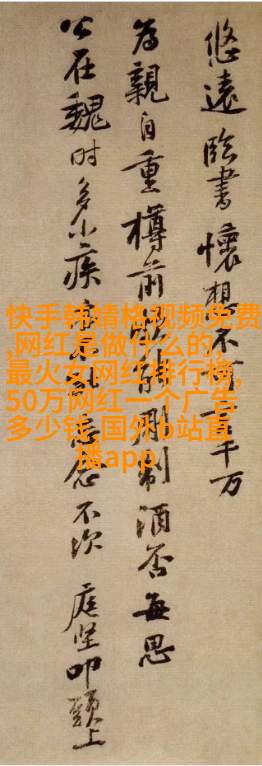 悠遠臨書懷想不千万
為親自重樽前能剛制酒否每思
公在魏時多小疾不次 庭堅叩頭上
快手韩婧格视频免费
,网红是做什么的,
最火女网红排行榜,
50万网红一个广告
多少钱,国外b站直
播app